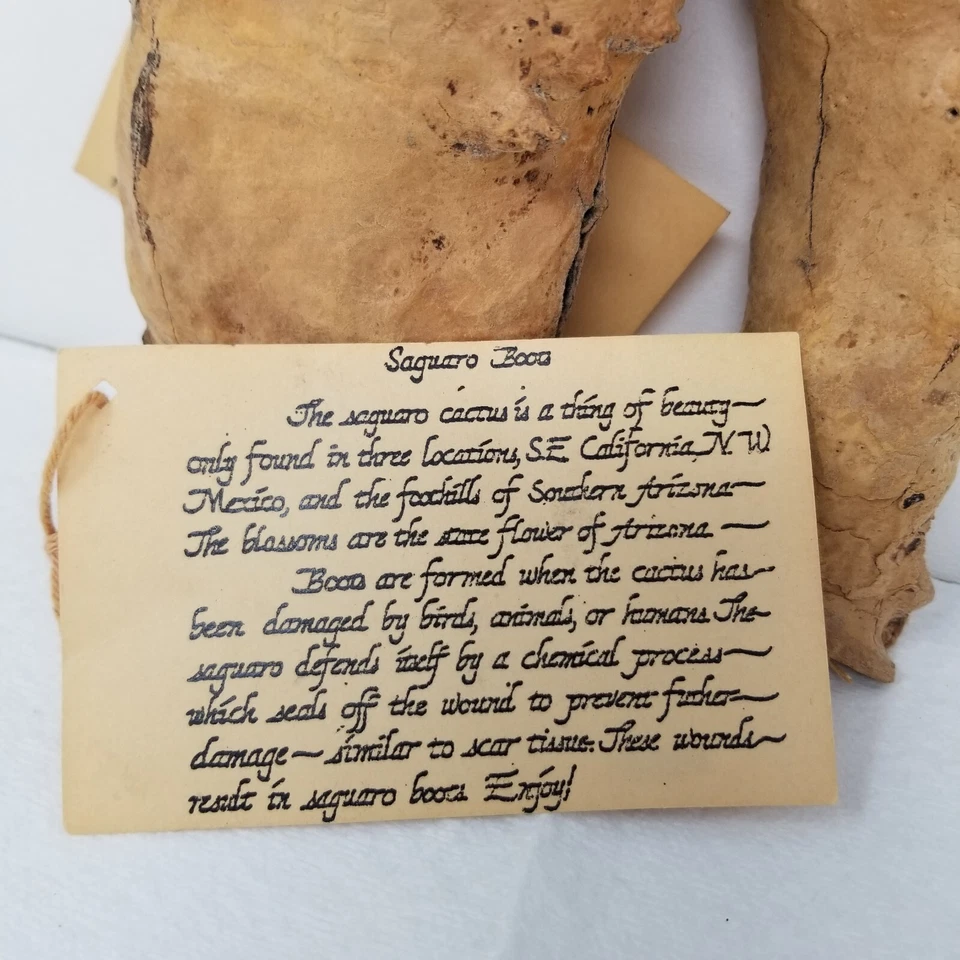 Saguaro Boots
The saguaro cactus is a thing of beauty—
only found in three locations, S.E. California, N.W.
Mexico, and the foothills of Southern Arizona—
The blossoms are the state flower of Arizona —
Boots are formed when the cactus has—
been damaged by birds, animals, or humans. The—
saguaro defends itself by a chemical process—
which seals off the wound to prevent futher—
damage— similar to scar tissue. These wounds—
result in saguaro boots. Enjoy!